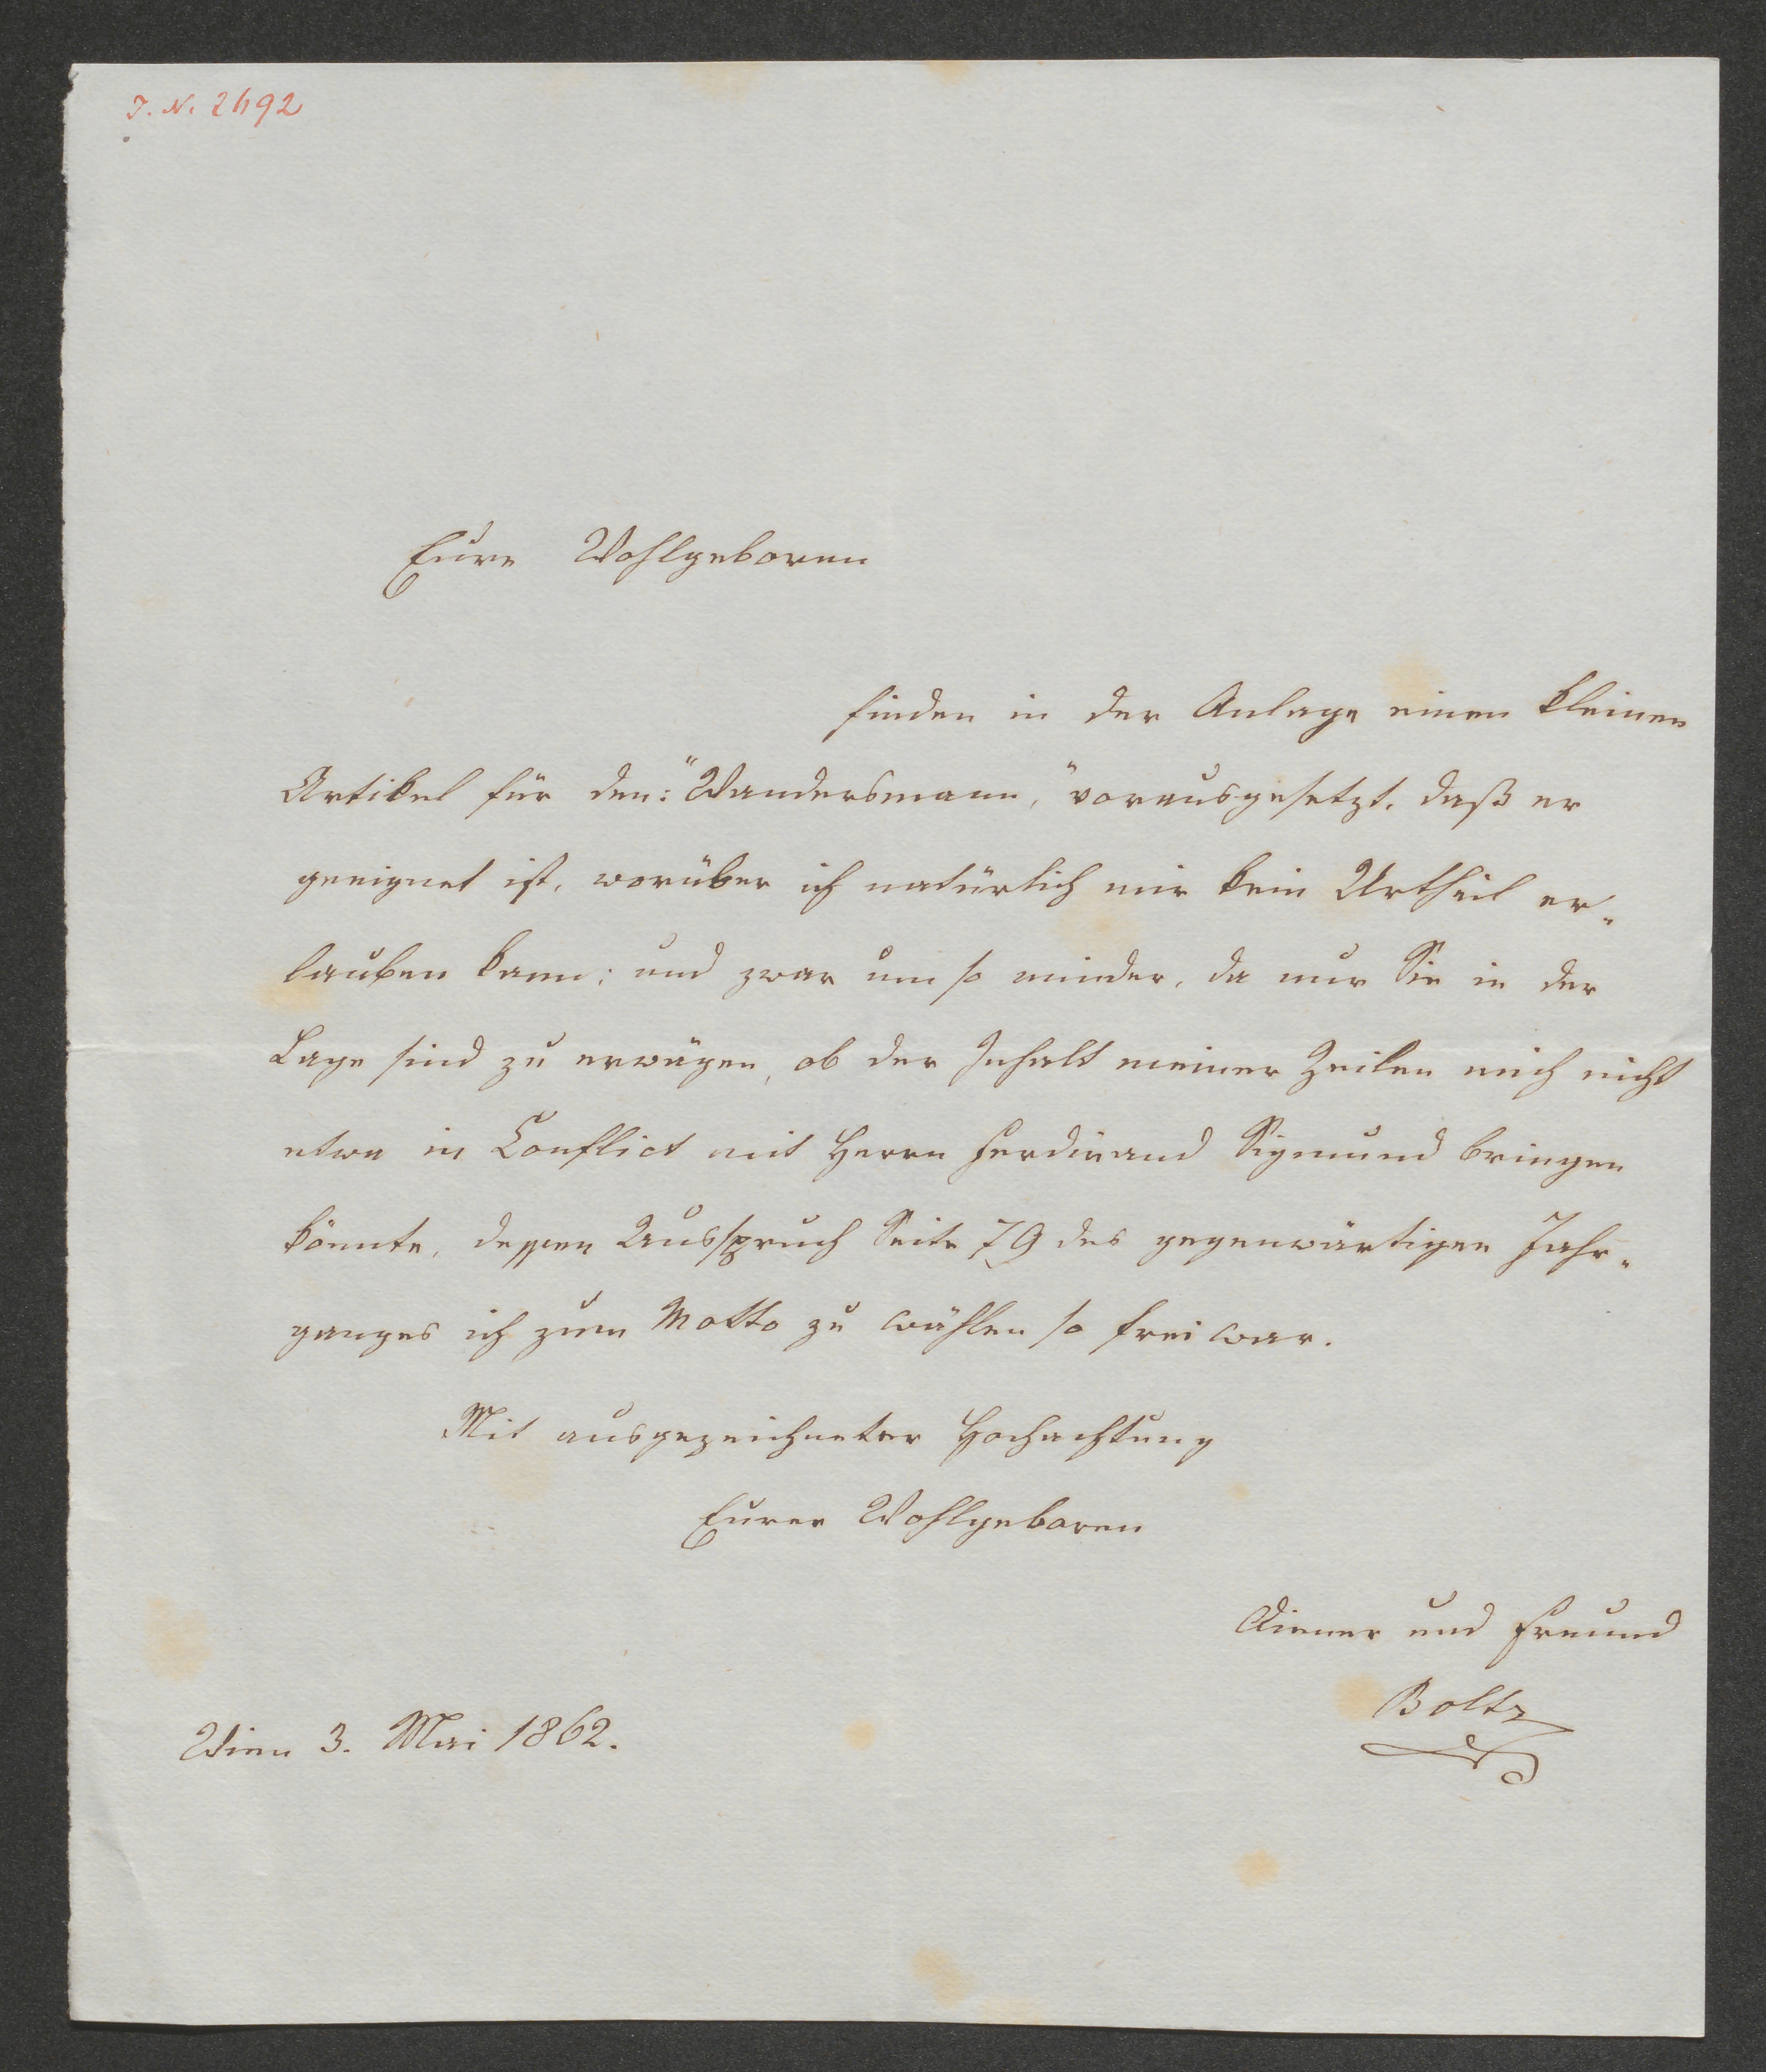 I. N. 2492
Eure Wohlgeboren
finden in der Anlage einen kleinen
Artikel für den: "Wandersmann," vorausgesetzt, daß er
geeignet ist, worüber ich natürlich mir kein Urtheil er-
lauben kann; und zwar um so minder, da nur Sie in der
Lage sind zu erwägen, ob der Inhalt meiner Zeilen mich nicht
etwa in Conflict mit Herrn Ferdinand Sigmund bringen
könnte, dessen Ausspruch Seite 79 des gegenwärtigen Jahr-
ganges ich zum Motto zu wählen so frei war.
Mit ausgezeichneter Hochachtung
Eurer Wohlgeboren
Diener und Freund
Boltz
Wien 3. Mai 1862.